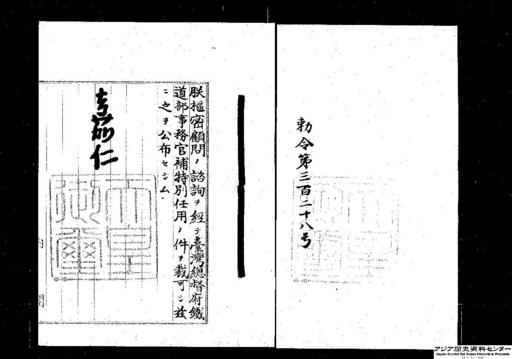 勅令第三百二十八号
朕樞密顧問ノ諮詢ヲ經テ臺灣總督府鐵
道部事務官補特別任用ノ件ヲ裁可シ茲
ニ之ヲ公布セシム
嘉仁
天皇
御璽
内
閣
アジア歴史資料センター
Japan Center for Asian Historical Records